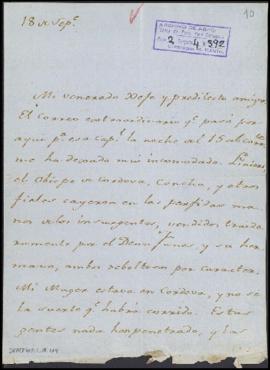 18 de Sepe.
10
ARCHIVO DE
2 4 392
Mi venerado Xefe y predilecto amigo.
El correo extraordinario qe. pasó por
aqui pa. esa Capl. la noche del 15 al
me ha dexado muy incomodado. Liniers,
el Obispo de Cordova, Concha, y otros
fieles cayeron en las perfidas ma-
nos de los insurgentes, vendidos traido-
ramente por el Dean Funes, y su her-
mano, ambos rebeltosos por caracter.
Mi Muger estava en Cordova, y no se
la suerte qe. habrá corrido. Estas
gentes nada han penetrado, y las